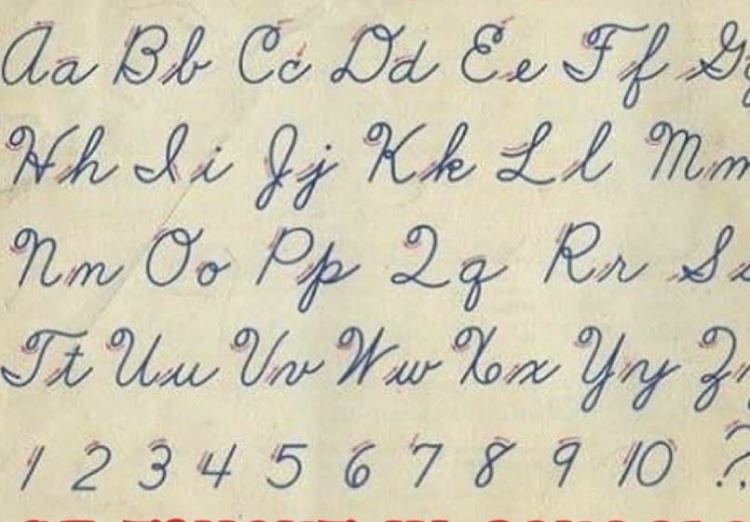 Aa Bb Cc Dd Ee Ff G
Hh Ii Jj Kk Ll Mm
Nn Oo Pp Qq Rr S
Tt Uu Vv Ww Xx Yy Z
1 2 3 4 5 6 7 8 9 10 ?